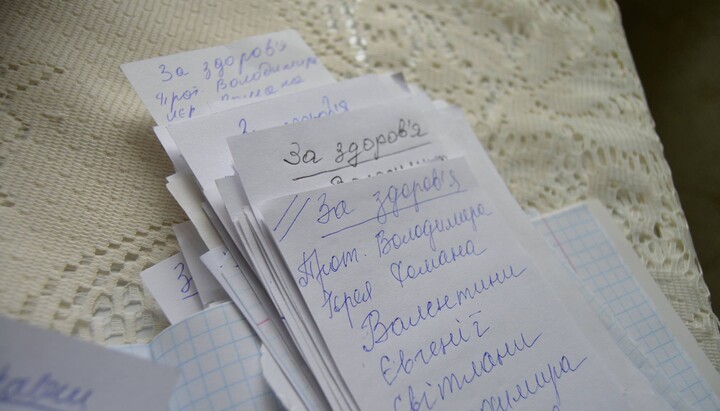 За здоров'я
Прот Володимира
ієр. Романа
За здоров'я
За здоров'я
За здоров'я
Прот. Володимира
Іерея Романа
Валентини
Євгенії
Світлани